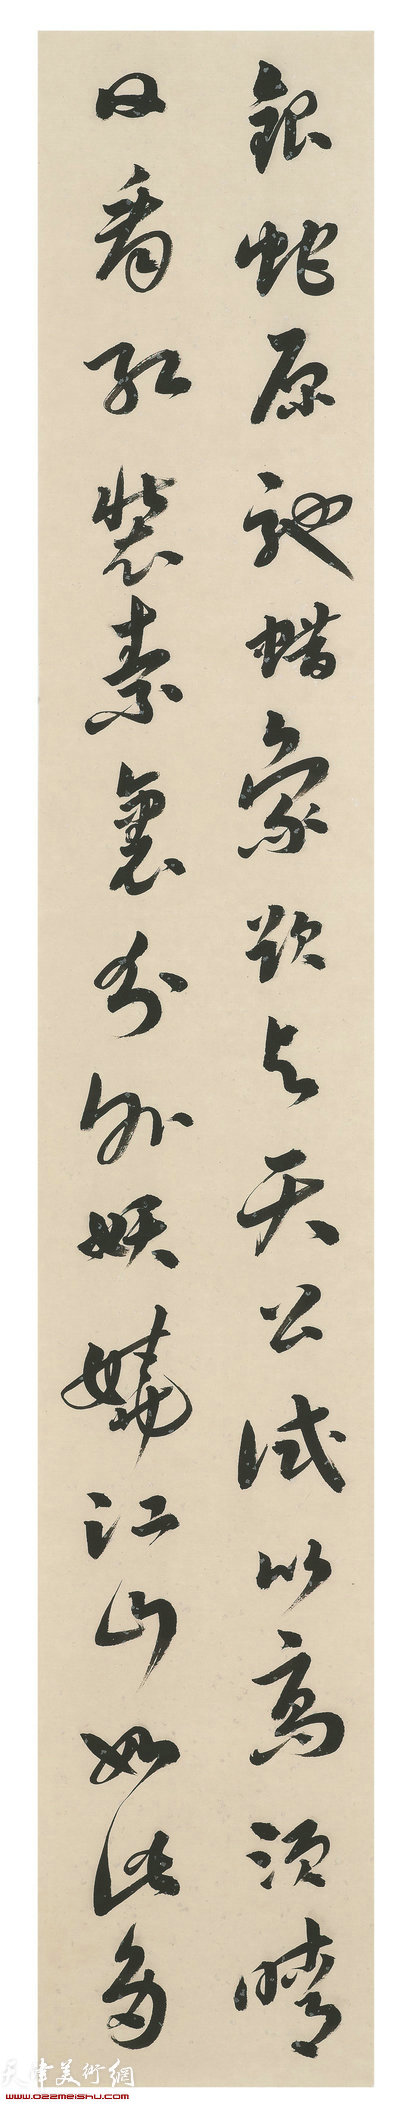 银蛇原驰蜡象欲与天公试比高须晴
日看红装素裹分外妖娆江山如此多
天津美術網
www.022meishu.com